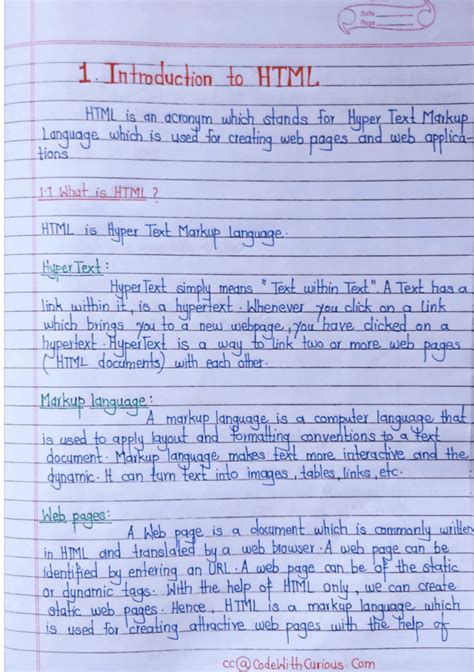 Date
Page
1. Introduction to HTML
HTML is an acronym which stands for Hyper Text Markup
Language which is used for creating web pages and web applica-
tions
1.1 What is HTML?
HTML is Hyper Text Markup language.
HyperText:
HyperText simply means "Text within Text". A Text has a
link within it, is a hypertext. Whenever you click on a link
which brings you to a new webpage, you have clicked on a
hypertext. HyperText is a way to link two or more web pages
(HTML documents) with each other.
Markup language:
A markup language is a computer language that
is used to apply layout and formatting conventions to a text
document. Markup language makes text more interactive and the
dynamic. It can turn text into images, tables, links, etc.
Web pages:
A Web page is a document which is commonly written
in HTML and translated by a web browser. A web page can be
identified by entering an URL. A web page can be of the static
or dynamic tags. With the help of HTML only, we can create
static web pages. Hence, HTML is a markup language which
is used for creating attractive web pages with the help of
cc@CodeWithCurious.Com